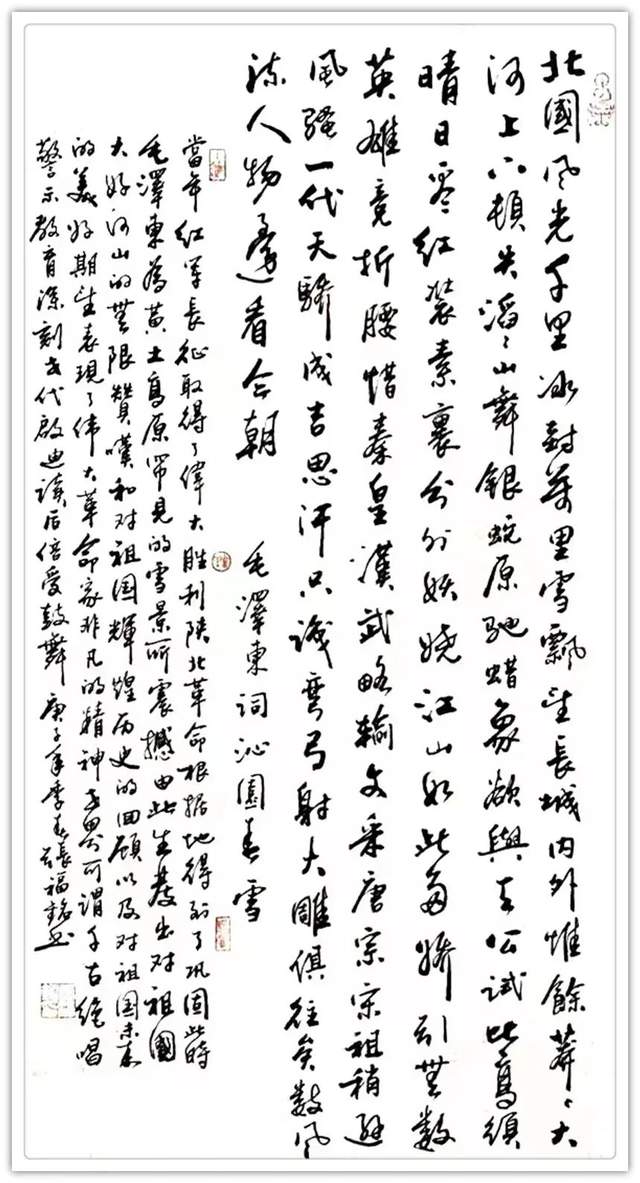 北國风光千里冰封萬里雪飘望长城内外惟餘莽々大
河上下頓失滔々山舞银蛇原驰蜡象欲與天公试比高须
晴日看红装素裹分外妖娆江山如此多娇引無数
英雄竞折腰惜秦皇漢武略输文采唐宗宋祖稍逊
風骚一代天骄成吉思汗只識弯弓射大雕俱往矣数风
流人物還看今朝
毛澤東词沁園春雪
當年红军长征取得了偉大胜利陕北革命根据地得到了巩固此時
毛澤東為黄土高原罕見的雪景所震撼由此生發出对祖國
大好河山的無限贊嘆和对祖国輝煌历史的回顾以及对祖国未来
的美好期望表現了伟大革命家非凡的精神世界可謂千古絶唱
警示教育深刻世代啟迪读后倍受鼓舞 庚子年季春张福铭书